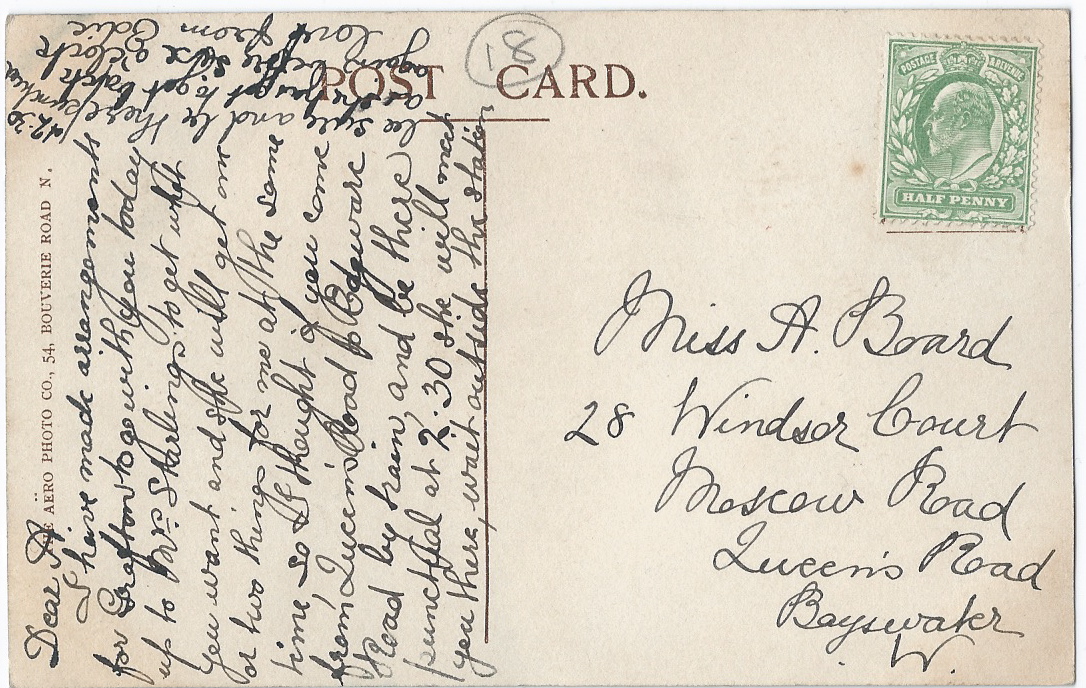 18
POST CARD.
POSTAGE & REVENUE
HALF PENNY
AËRO PHOTO CO., 54, BOUVERIE ROAD N.
Dear A
I have made arrangements
for Grafton to go with you today
up to Mrs Starlings to get what
you want and she will get me
or two things for me at the same
time, so I thought if you come
from Queens Road to Edgware
Road by train, and be there
punctual at 2.30 she will meet
you there, wait outside the station
12.30
be sure and be there
as she has got to get back
again before six o'clock
love from Edie
Miss A. Board
28 Windsor Court
Moscow Road
Queen's Road
Bayswater
W.